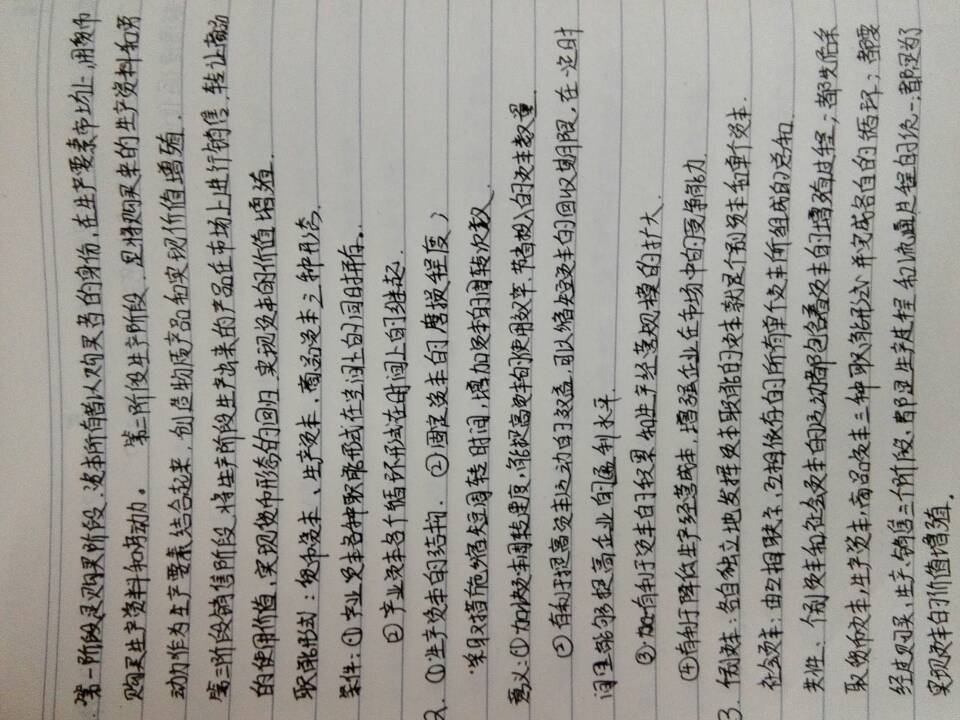 第一阶段是购买阶段,资本所有者以购买者的身份,在生产要素市场上,用货币
购买生产资料和劳动力。 第二阶段生产阶段,是将购买来的生产资料和劳
动力作为生产要素结合起来,创造物质产品和实现价值增殖.
第三阶段销售阶段,将生产阶段生产出来的产品在市场上进行销售,转让商品
的使用价值,实现货币形态的回归,实现资本的价值增殖
职能形式:货币资本、生产资本、商品资本三种形态.
条件:①产业资本各种职能形式在空间上的同时并存。
②产业资本各个循环形式在时间上的继起.
2. ①生产资本的结构. ②固定资本的磨损程度)
采取措施缩短周转时间,增加资本的周转次数.
意义:①加快资本周转速度,能提高资本的使用效率,节省投入的资本数量
②有利于提高资本运动的效益,可以缩短资本的回收期限,在一定时
间里能够提高企业的盈利水平
③有利于资本的积累和生产经营规模的扩大.
④有利于降低生产经营成本,增强企业在市场中的竞争能力
3. 个别资本:各自独立地发挥资本职能的资本就是个别资本和单个资本.
社会资本:由互相联系,互相依存的所有单个资本所组成的总和.
共性:个别资本和社会资本的运动都包含着资本的增殖过程;都先后采
取货币资本,生产资本,商品资本三种职能形式并完成各自的循环;都要
经过购买、生产、销售三个阶段,都是生产过程和流通过程的统一;都是为
实现资本的价值增殖.